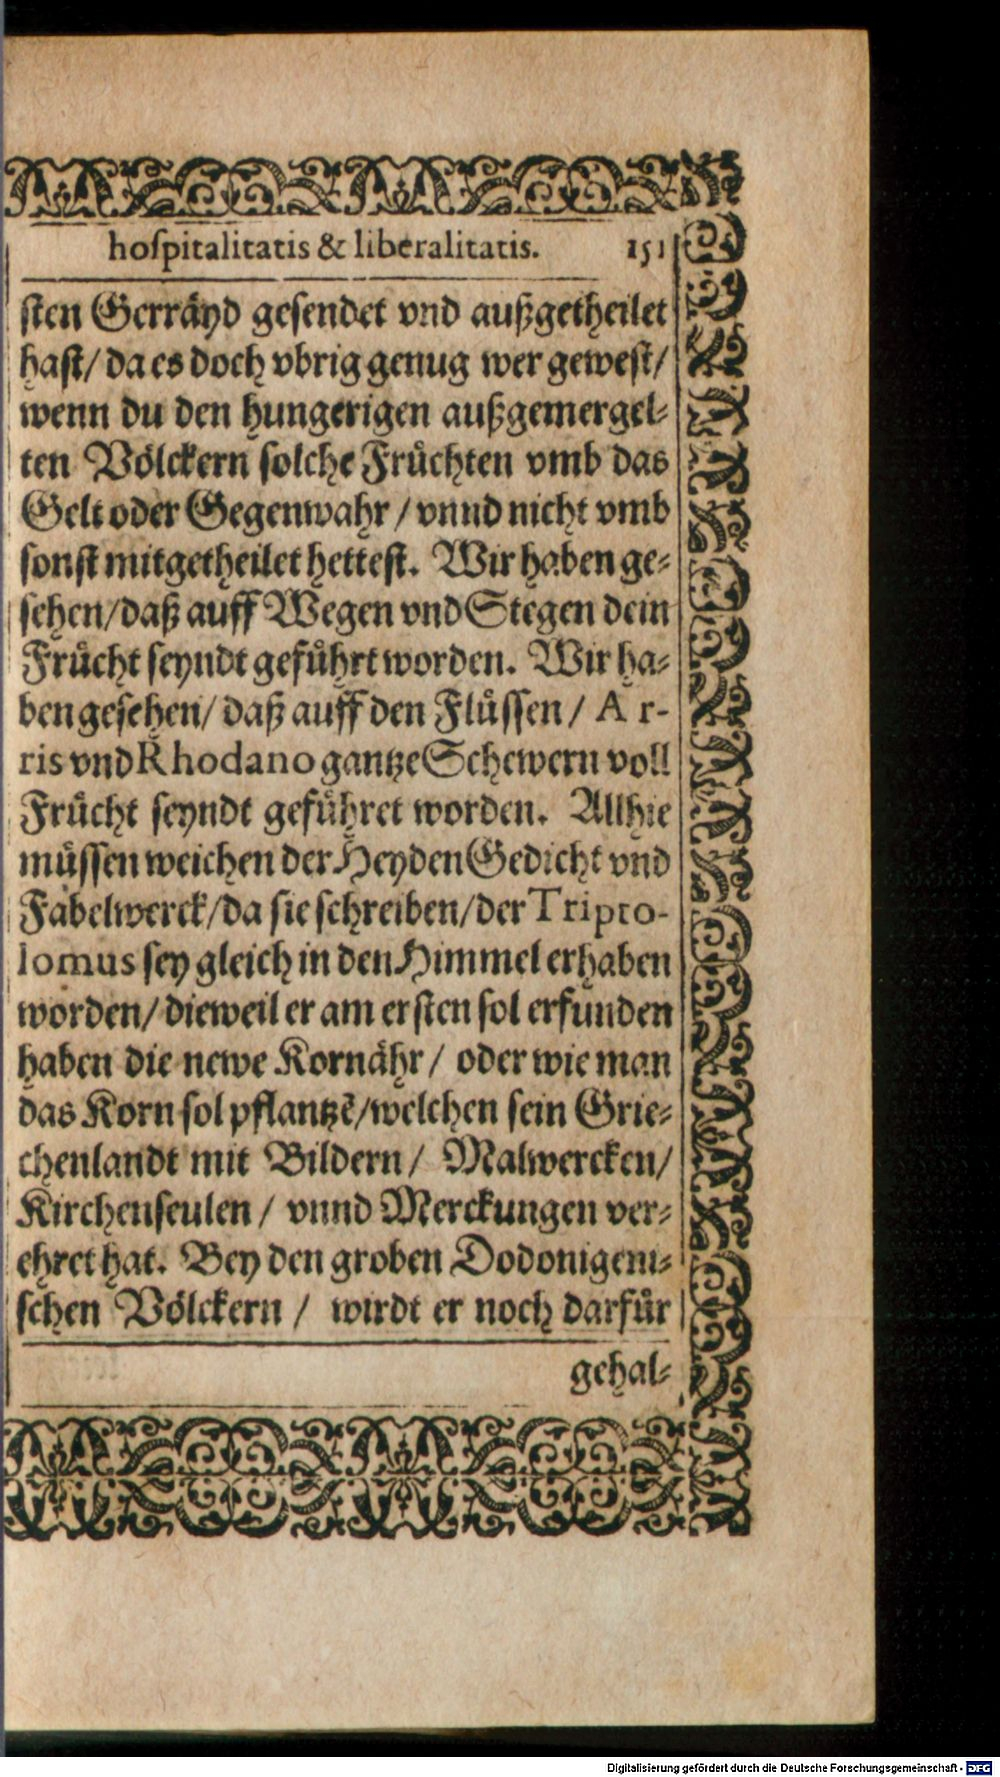 hoſpitalitatis & liberalitatis. 151
ſten Gerråyd geſendet vnd außgetheilet
haſt/ da es doch vbrig genug wer geweſt/
wenn du den hungerigen außgemergel-
ten Vőlckern ſolche Frůchten vmb das
Gelt oder Gegenwahr / vnnd nicht vmb
ſonſt mitgetheilet hetteſt. Wir haben ge-
ſehen/daß auff Wegen vnd Stegen dein
Frůcht ſeyndt gefůhrt worden. Wir ha-
ben geſehen/ daß auff den Flůſſen / A r-
ris vnd Rhodano gantze Schewern voll
Frůcht ſeyndt gefůhret worden. Allhie
můſſen weichen der Heyden Gedicht vnd
Fabelwerck/da ſie ſchreiben/der Tripto-
lomus ſey gleich in den Himmel erhaben
worden/ dieweil er am erſten ſol erfunden
haben die newe Kornåhr / oder wie man
das Korn ſol pflantzẽ/welchen ſein Grie-
chenlandt mit Bildern / Malwercken/
Kirchenſeulen / vnnd Merckungen ver-
ehret hat. Bey den groben Dodonigeni-
ſchen Vőlckern / wirdt er noch darfůr
gehal-
Digitalisierung gefördert durch die Deutsche Forschungsgemeinschaft - DFG